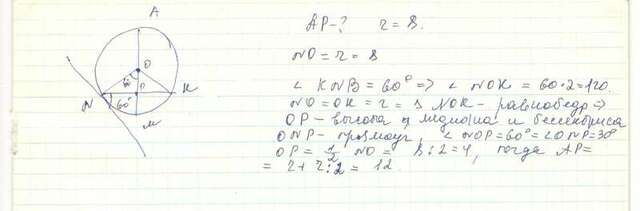 A
O
60°
P
N
K
60°
M
AP-? r = 8.
NO = r = 8
∠ KNB = 60° => ∠ NOK = 60·2 = 120.
NO = OK = r = 8 NOK - равнобедр =>
OP - высота и медиана и биссектриса
ONP - прямоуг, ∠ NOP = 60° = ∠ONP = 30°
OP = 1/2 NO = 8 : 2 = 4, тогда AP =
= r + r : 2 = 12.